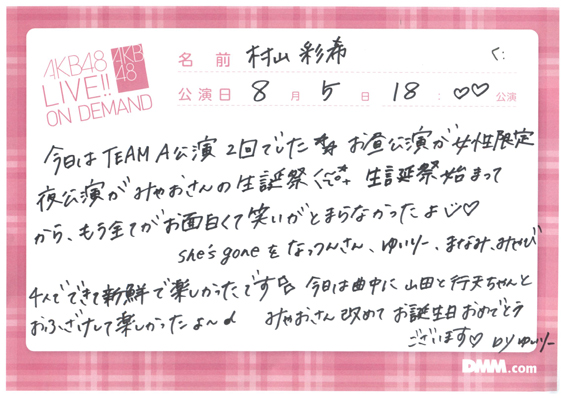 AKB48
LIVE!!
ON DEMAND
AKB
48
名前 村山 彩希
公演日 8月 5日 18:♡♡公演
今日は TEAM A公演 2回でした お昼公演が女性限定
夜公演がみゃおさんの生誕祭 生誕祭始まって
から、もう全てがお面白くて笑いがとまらなかったよ♡
she's gone を なっつんさん、ゆいりー、まなみ、みせび
4人でできて新鮮で楽しかったです 今日は曲中に 山田と行天ちゃんと
おふざけして楽しかったよ〜♪ みゃおさん 改めて お誕生日おめでとう
ございます♡ by ゆいりー
DMM.com